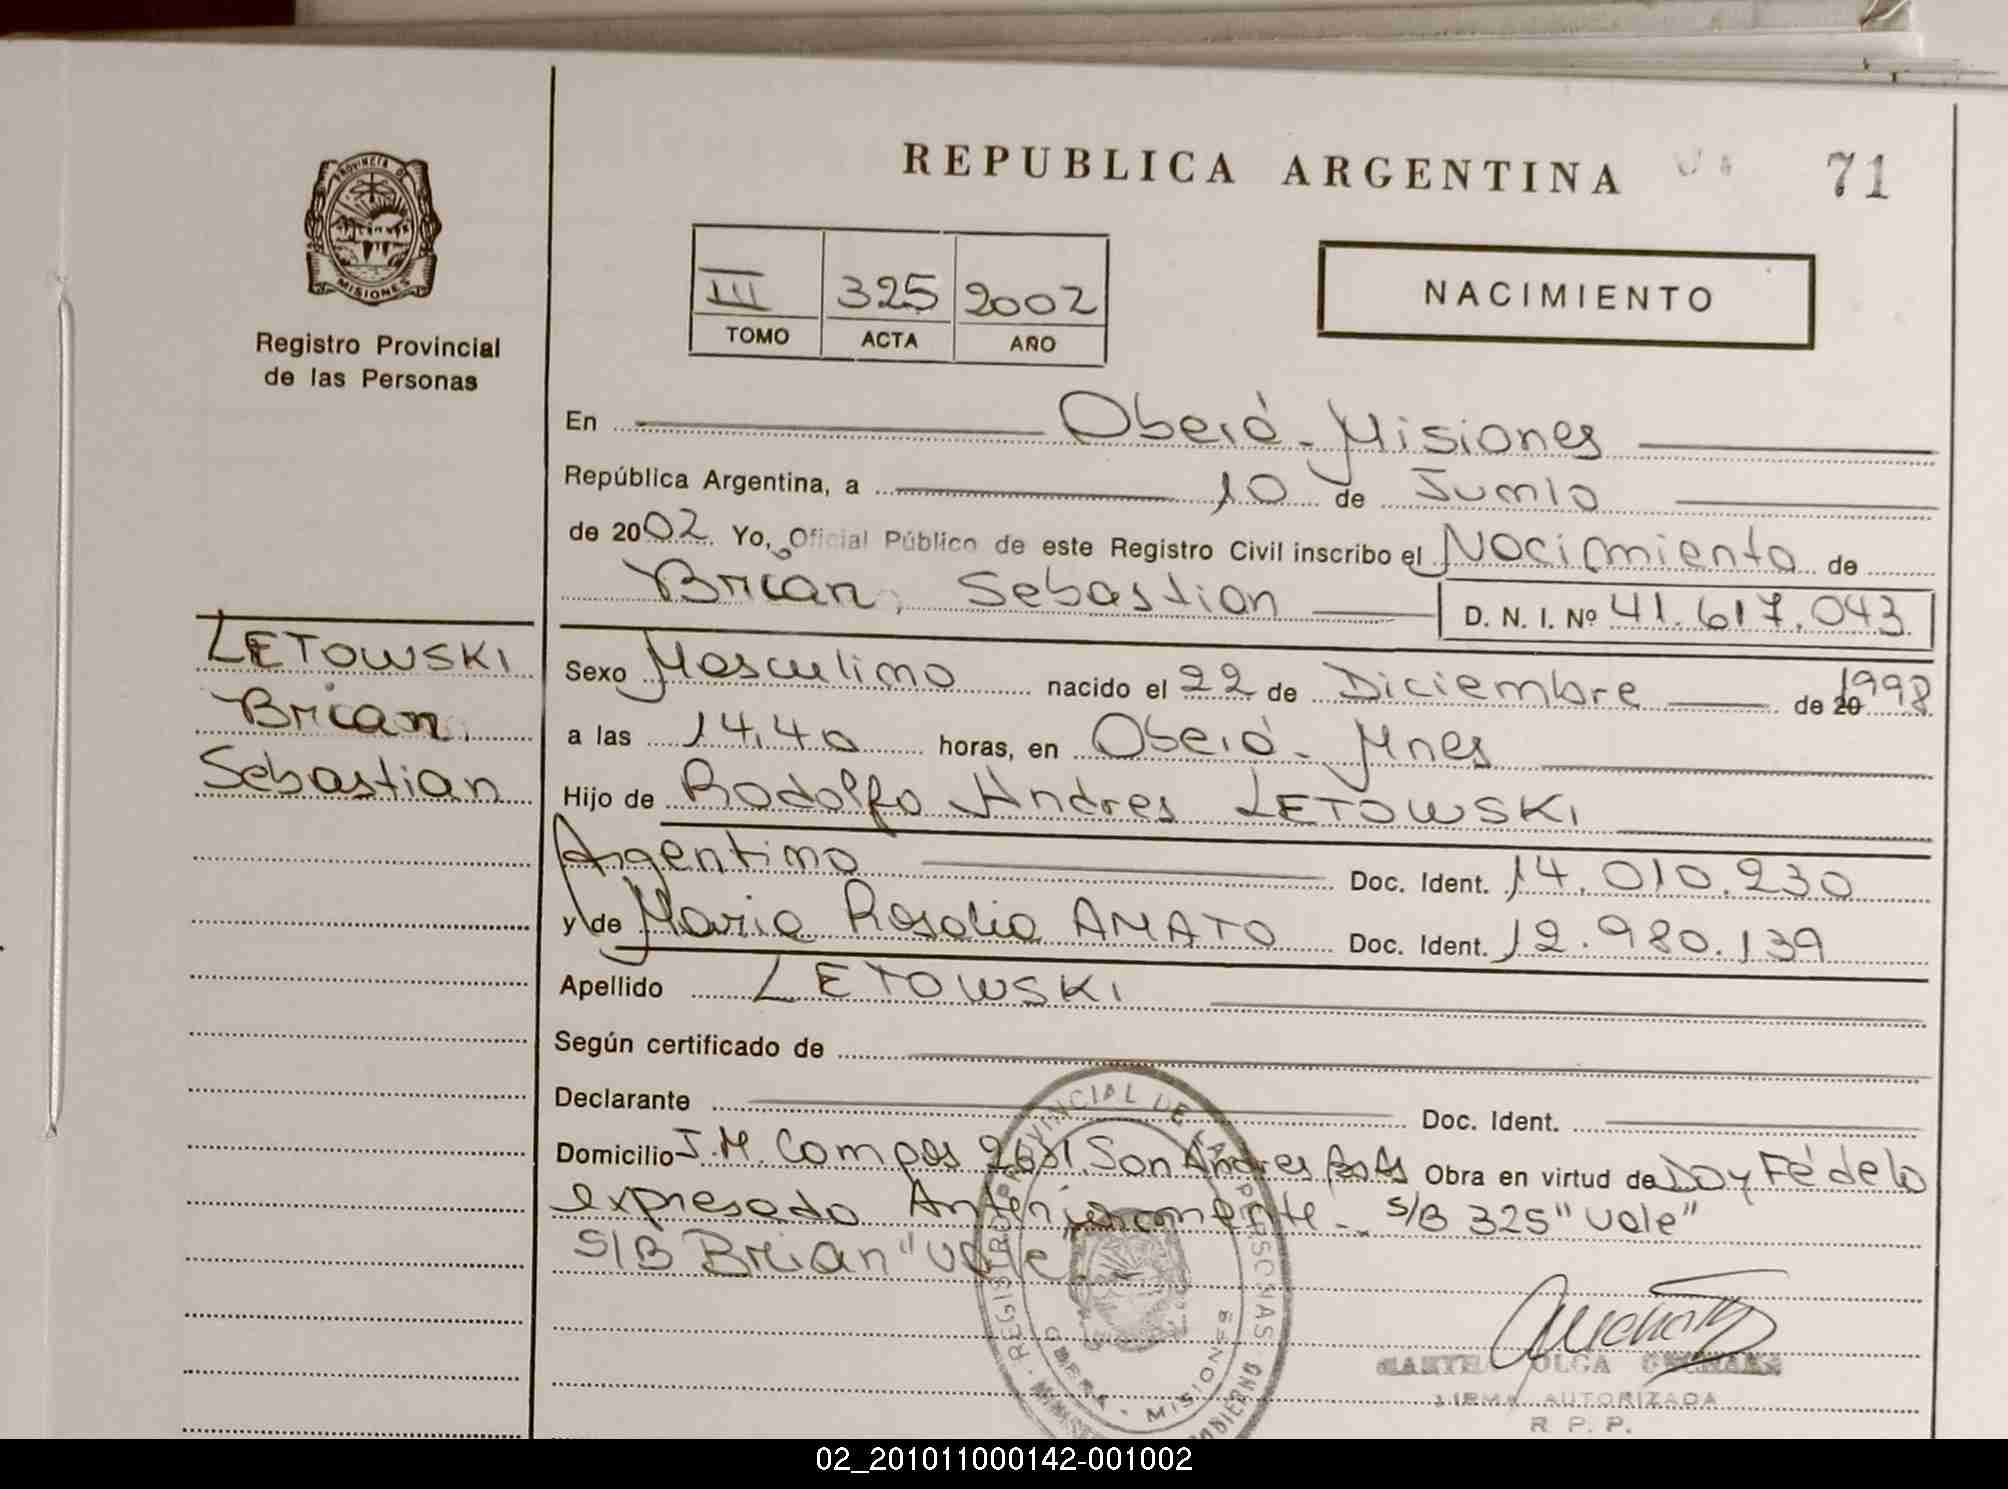 PROVINCIA DE
MISIONES
Registro Provincial
de las Personas
LETOWSKI
Brian,
Sebastian
REPUBLICA ARGENTINA
71
III 325 2002
TOMO ACTA AÑO
NACIMIENTO
En Oberá - Misiones
República Argentina, a 10 de Junio
de 2002. Yo, Oficial Público de este Registro Civil inscribo el Nacimiento de
Brian, Sebastian D. N. I. Nº 41.617.043
Sexo Masculino nacido el 22 de Diciembre de 20 1998
a las 14,40 horas, en Oberá - Mnes
Hijo de Rodolfo Andres LETOWSKI
Argentino Doc. Ident. 14.010.230
y de Maria Rosalia AMATO Doc. Ident. 12.980.139
Apellido LETOWSKI
Según certificado de
Declarante Doc. Ident.
Domicilio J.M. Campos San Andres Bs As Obra en virtud de Doy Fé de lo
expresado Anteriormente - S/B 325 "Vale"
S/B Brian "Vale"
REGISTRO PROVINCIAL DE LAS PERSONAS
OBERA - MISIONES
OLGA
FIRMA AUTORIZADA
R. P. P.
02_201011000142-001002